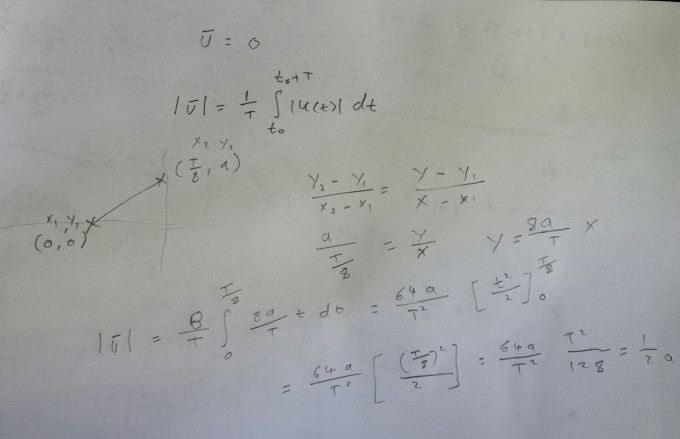 Ū = 0
|Ū| = 1/T ∫_{t₀}^{t₀+T} |u(t)| dt
x₂ y₂
(T/8, a)
x₁, y₁
(0,0)
(y₂ - y₁)/(x₂ - x₁) = (y - y₁)/(x - x₁)
a/(T/8) = y/x   y = 8a/T x
|Ū| = 8/T ∫_0^{T/8} 8a/T t dt = 64a/T² [t²/2]_0^{T/8}
= 64a/T² [(T/8)²/2] = 64a/T² T²/128 = 1/2 a